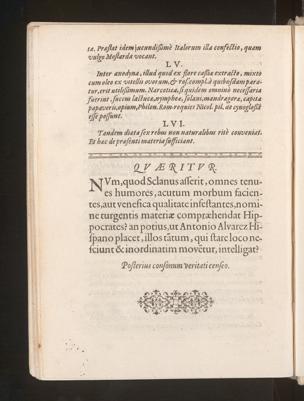 ta. Præstat idem jucundißimè Italorum illa confectio, quam
vulgo Mostarda vocant.
LV.
Inter anodyna, illud quod ex flore caßiæ extractæ, mixto
cum oleo ex vitellis ovorum, & rosis compl. à quibusdam para-
tur, erit utilißimum. Narcotica, si quidem omninò necessaria
fuerint, succum lactucæ, nymphææ, solani, mandragoræ, capita
papaveris, opium, Philon. Rom. requies Nicol. pil. de cynoglossâ
esse possunt.
LVI.
Tandem diæta sex rebus non naturalibus ritè conveniat.
Et hæc de præsenti materia sufficiant.
QVÆRITVR.
NVm, quod Sclanus asserit, omnes tenu-
es humores, acutum morbum facien-
tes, aut venefica qualitate infestantes, nomi-
ne turgentis materiæ compræhendat Hip-
pocrates? an potius, ut Antonio Alvarez Hi-
spano placet, illos tãtum, qui stare loco ne-
sciunt & inordinatim movẽtur, intelligat?
Posterius consonum veritati censeo.